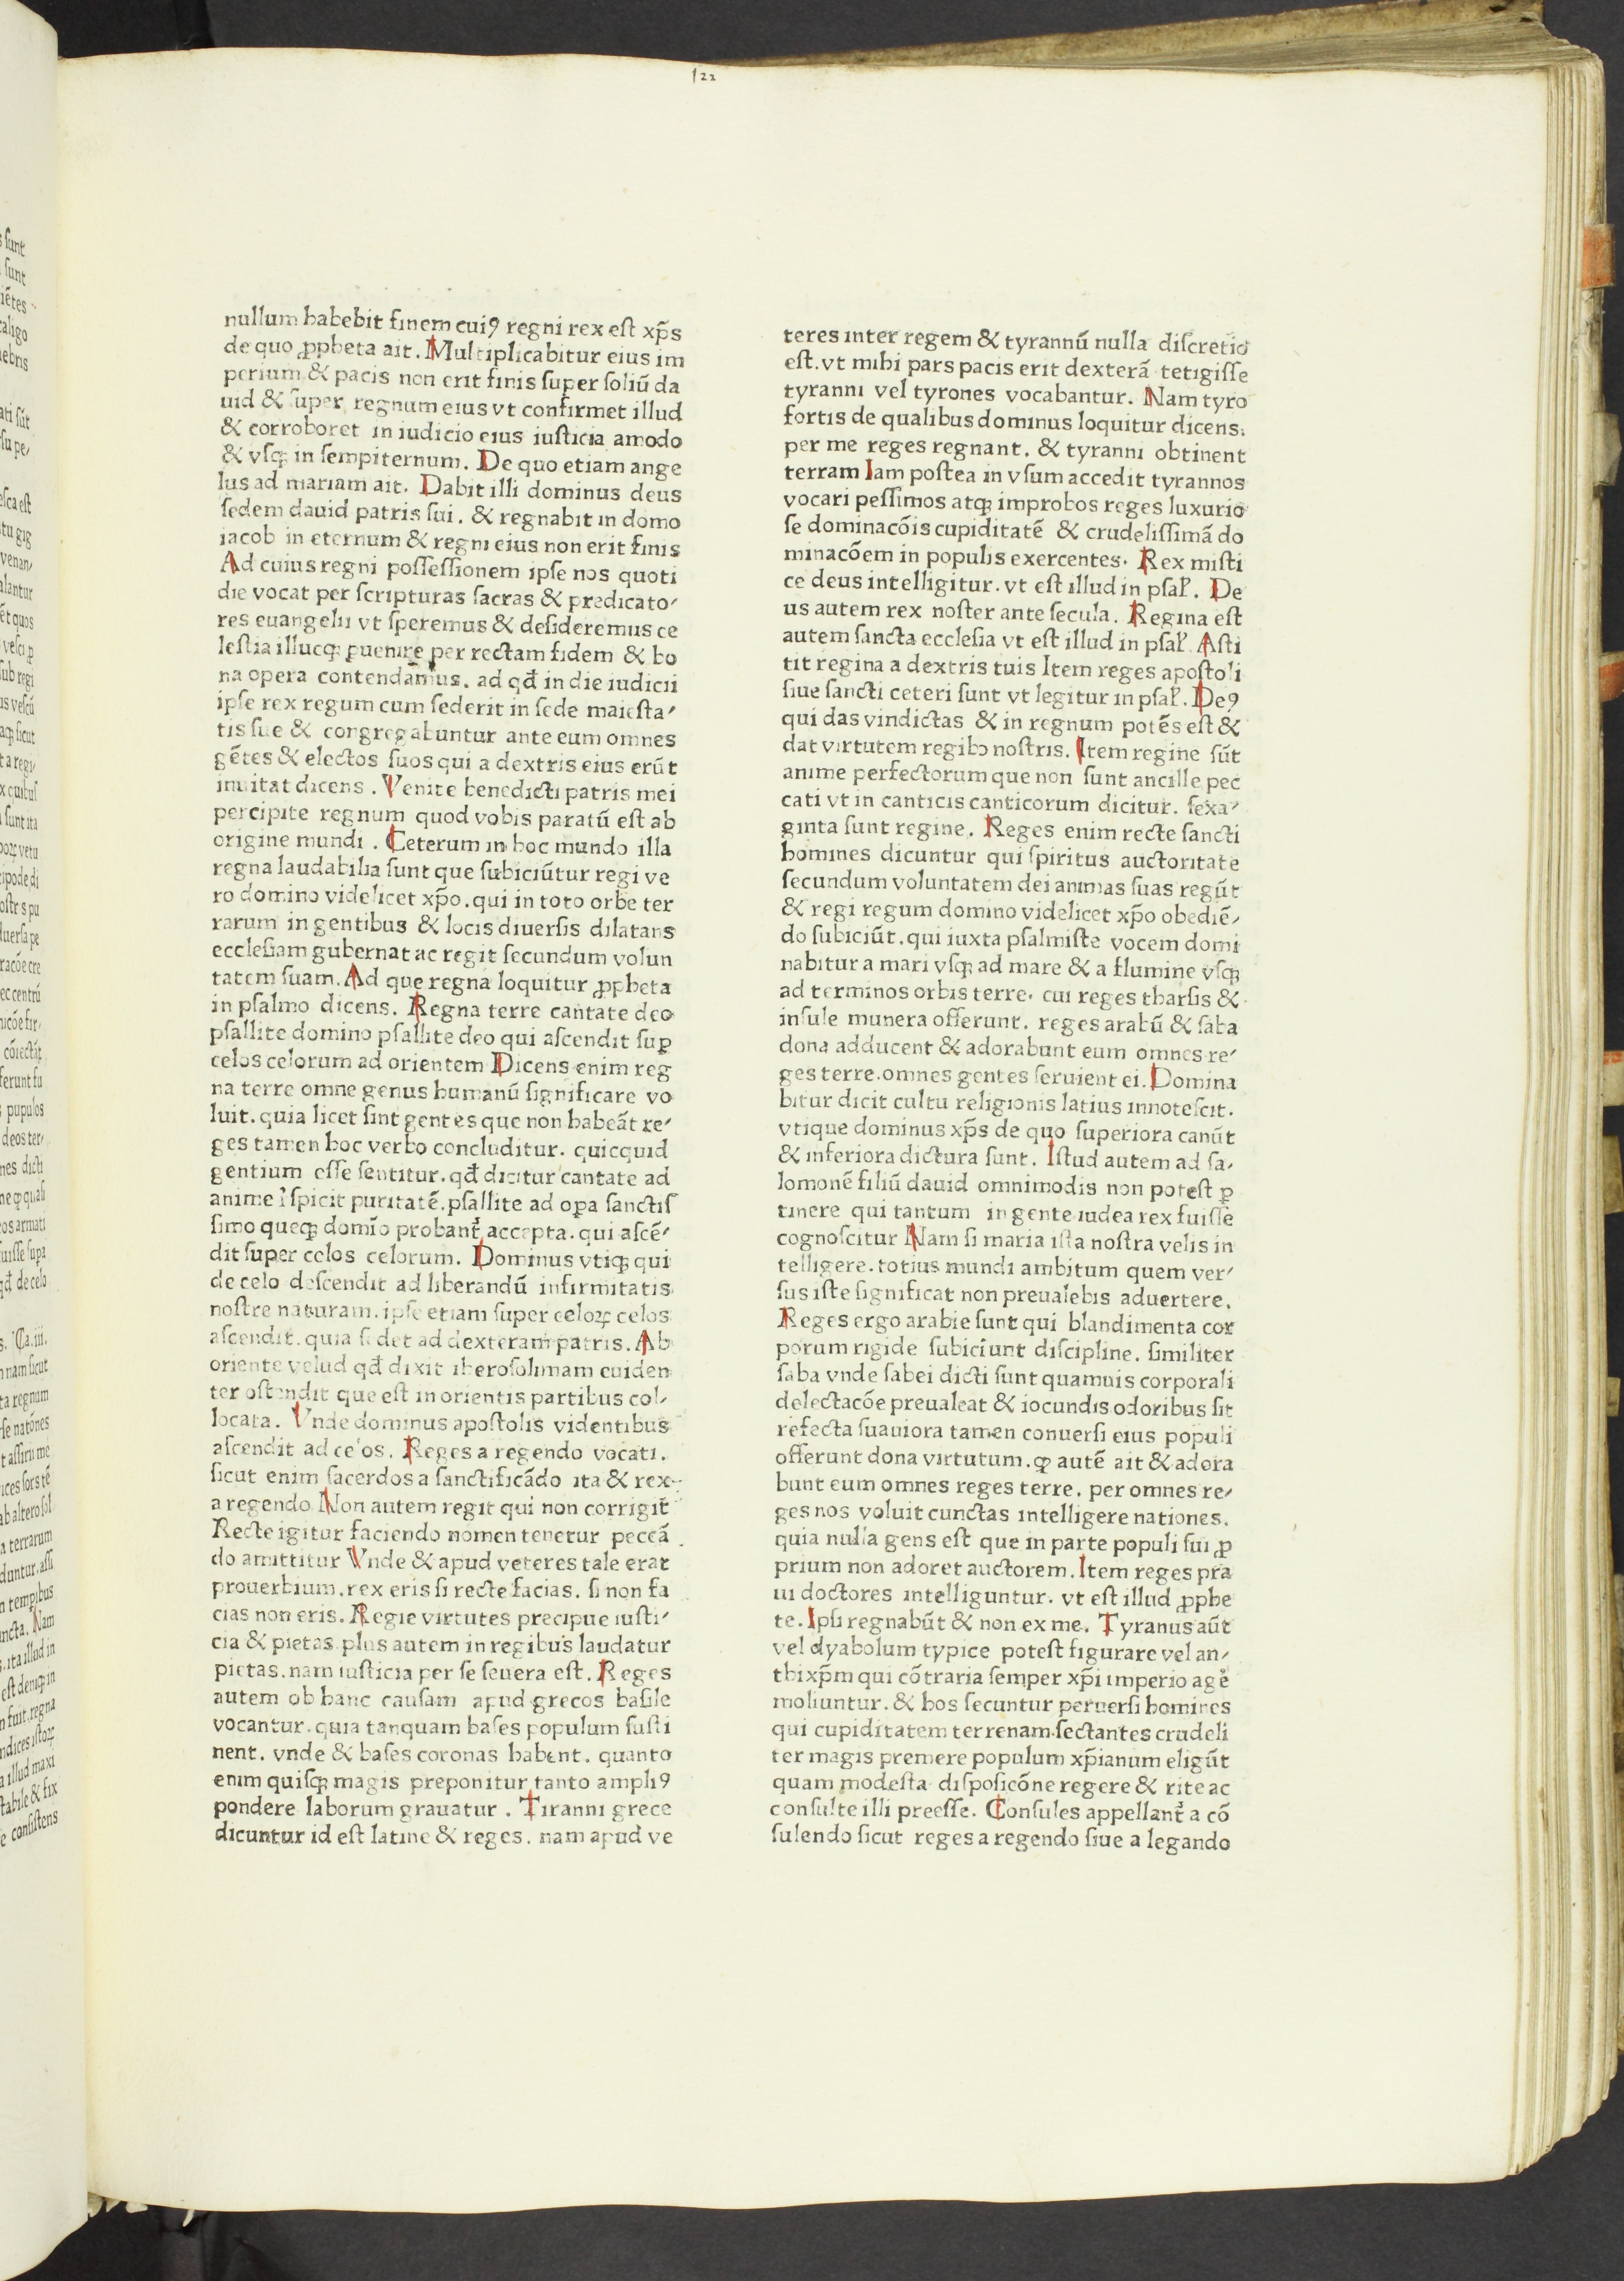 122
nullum habebit finem cuiꝯ regni rex eſt xp̄s
de quo ꝓpheta ait. Multiplicabitur eius im
perium & pacis non erit finis ſuper ſoliū da
uid & ſuper regnum eius vt confirmet illud
& corroboret in iudicio eius iuſticia amodo
& vſqꝫ in ſempiternum. De quo etiam ange
lus ad mariam ait. Dabit illi dominus deus
ſedem dauid patris ſui. & regnabit in domo
iacob in eternum & regni eius non erit finis
Ad cuius regni poſſeſſionem ipſe nos quoti
die vocat per ſcripturas ſacras & predicato⸗
res euangelii vt ſperemus & deſideremus ce
leſtia illucqꝫ ꝑuenire per rectam fidem & bo
na opera contendamus. ad qđ in die iudicii
ipſe rex regum cum ſederit in ſede maieſta⸗
tis ſue & congregabuntur ante eum omnes
gētes & electos ſuos qui a dextris eius erūt
inuitat dicens . Venite benedicti patris mei
percipite regnum quod vobis paratū eſt ab
origine mundi . Ceterum in hoc mundo illa
regna laudabilia ſunt que ſubiciūtur regi ve
ro domino videlicet xp̄o. qui in toto orbe ter
rarum in gentibus & locis diuerſis dilatans
eccleſiam gubernat ac regit ſecundum volun
tatem ſuam. Ad que regna loquitur ꝓpheta
in pſalmo dicens. Regna terre cantate deo
pſallite domino pſallite deo qui aſcendit ſuꝑ
celos celorum ad orientem Dicens enim reg
na terre omne genus humanū ſignificare vo
luit. quia licet ſint gentes que non habeāt re⸗
ges tamen hoc verbo concluditur. quicquid
gentium eſſe ſentitur. qđ dicitur cantate ad
anime ꝛ̉ſpicit puritatē. pſallite ad oꝑa ſanctiſ
ſimo queqꝫ domīo probant᷑ accepta. qui aſcē⸗
dit ſuper celos celorum. Dominus vtiqꝫ qui
de celo deſcendit ad liberandū infirmitatis
noſtre naturam. ipſe etiam ſuper celoꝝ celos
aſcendit. quia ſedet ad dexteram patris. Ab
oriente velud qđ dixit iheroſolimam euiden
ter oſtendit que eſt in orientis partibus col⸗
locata. Vnde dominus apoſtolis videntibus
aſcendit ad celos. Reges a regendo vocati.
ſicut enim ſacerdos a ſanctificādo ita & rex
a regendo Non autem regit qui non corrigit
Recte igitur faciendo nomen tenetur peccā
do amittitur Vnde & apud veteres tale erat
prouerbium. rex eris ſi recte facias. ſi non fa
cias non eris. Regie virtutes precipue iuſti⸗
cia & pietas plus autem in regibus laudatur
pietas. nam iuſticia per ſe ſeuera eſt. Reges
autem ob hanc cauſam apud grecos baſile
vocantur. quia tanquam baſes populum ſuſti
nent. vnde & baſes coronas habent. quanto
enim quiſqꝫ magis preponitur tanto ampliꝯ
pondere laborum grauatur . Tiranni grece
dicuntur id eſt latine & reges. nam apud ve
teres inter regem & tyrannū nulla diſcretio
eſt. vt mihi pars pacis erit dexterā tetigiſſe
tyranni vel tyrones vocabantur. Nam tyro
fortis de qualibus dominus loquitur dicens.
per me reges regnant. & tyranni obtinent
terram Iam poſtea in vſum accedit tyrannos
vocari peſſimos atqꝫ improbos reges luxurio
ſe dominacōis cupiditatē & crudeliſſimā do
minacōem in populis exercentes. Rex miſti
ce deus intelligitur. vt eſt illud in pſał. De
us autem rex noſter ante ſecula. Regina eſt
autem ſancta eccleſia vt eſt illud in pſał. Aſti
tit regina a dextris tuis Item reges apoſtoli
ſiue ſancti ceteri ſunt vt legitur in pſał. Deꝯ
qui das vindictas & in regnum potēs eſt &
dat virtutem regibꝫ noſtris. Item regine ſūt
anime perfectorum que non ſunt ancille pec
cati vt in canticis canticorum dicitur. ſexa⸗
ginta ſunt regine. Reges enim recte ſancti
homines dicuntur qui ſpiritus auctoritate
ſecundum voluntatem dei animas ſuas regūt
& regi regum domino videlicet xp̄o obediē⸗
do ſubiciūt. qui iuxta pſalmiſte vocem domi
nabitur a mari vſqꝫ ad mare & a flumine vſqꝫ
ad terminos orbis terre. cui reges tharſis &
inſule munera offerunt. reges arabū & ſaba
dona adducent & adorabunt eum omnes re⸗
ges terre. omnes gentes ſeruient ei. Domina
bitur dicit cultu religionis latius innoteſcit.
vtique dominus xp̄s de quo ſuperiora canūt
& inferiora dictura ſunt. Iſtud autem ad ſa⸗
lomonē filiū dauid omnimodis non poteſt ꝑ
tinere qui tantum in gente iudea rex fuiſſe
cognoſcitur Nam ſi maria iſta noſtra velis in
telligere. totius mundi ambitum quem ver⸗
ſus iſte ſignificat non preualebis aduertere.
Reges ergo arabie ſunt qui blandimenta cor
porum rigide ſubiciunt diſcipline. ſimiliter
ſaba vnde ſabei dicti ſunt quamuis corporali
delectacōe preualeat & iocundis odoribus ſit
refecta ſuauiora tamen conuerſi eius populi
offerunt dona virtutum. qꝫ autē ait & adora
bunt eum omnes reges terre. per omnes re⸗
ges nos voluit cunctas intelligere nationes.
quia nulla gens eſt que in parte populi ſui ꝓ
prium non adoret auctorem. Item reges pra
ui doctores intelliguntur. vt eſt illud ꝓphe
te. Ipſi regnabūt & non ex me. Tyranus aūt
vel dyabolum typice poteſt figurare vel an⸗
thixp̄m qui cōtraria ſemper xp̄i imperio agē
moliuntur. & hos ſecuntur peruerſi homines
qui cupiditatem terrenam ſectantes crudeli
ter magis premere populum xp̄ianum eligūt
quam modeſta diſpoſicōne regere & rite ac
conſulte illi preeſſe. Conſules appellant᷑ a cō
ſulendo ſicut reges a regendo ſiue a legando